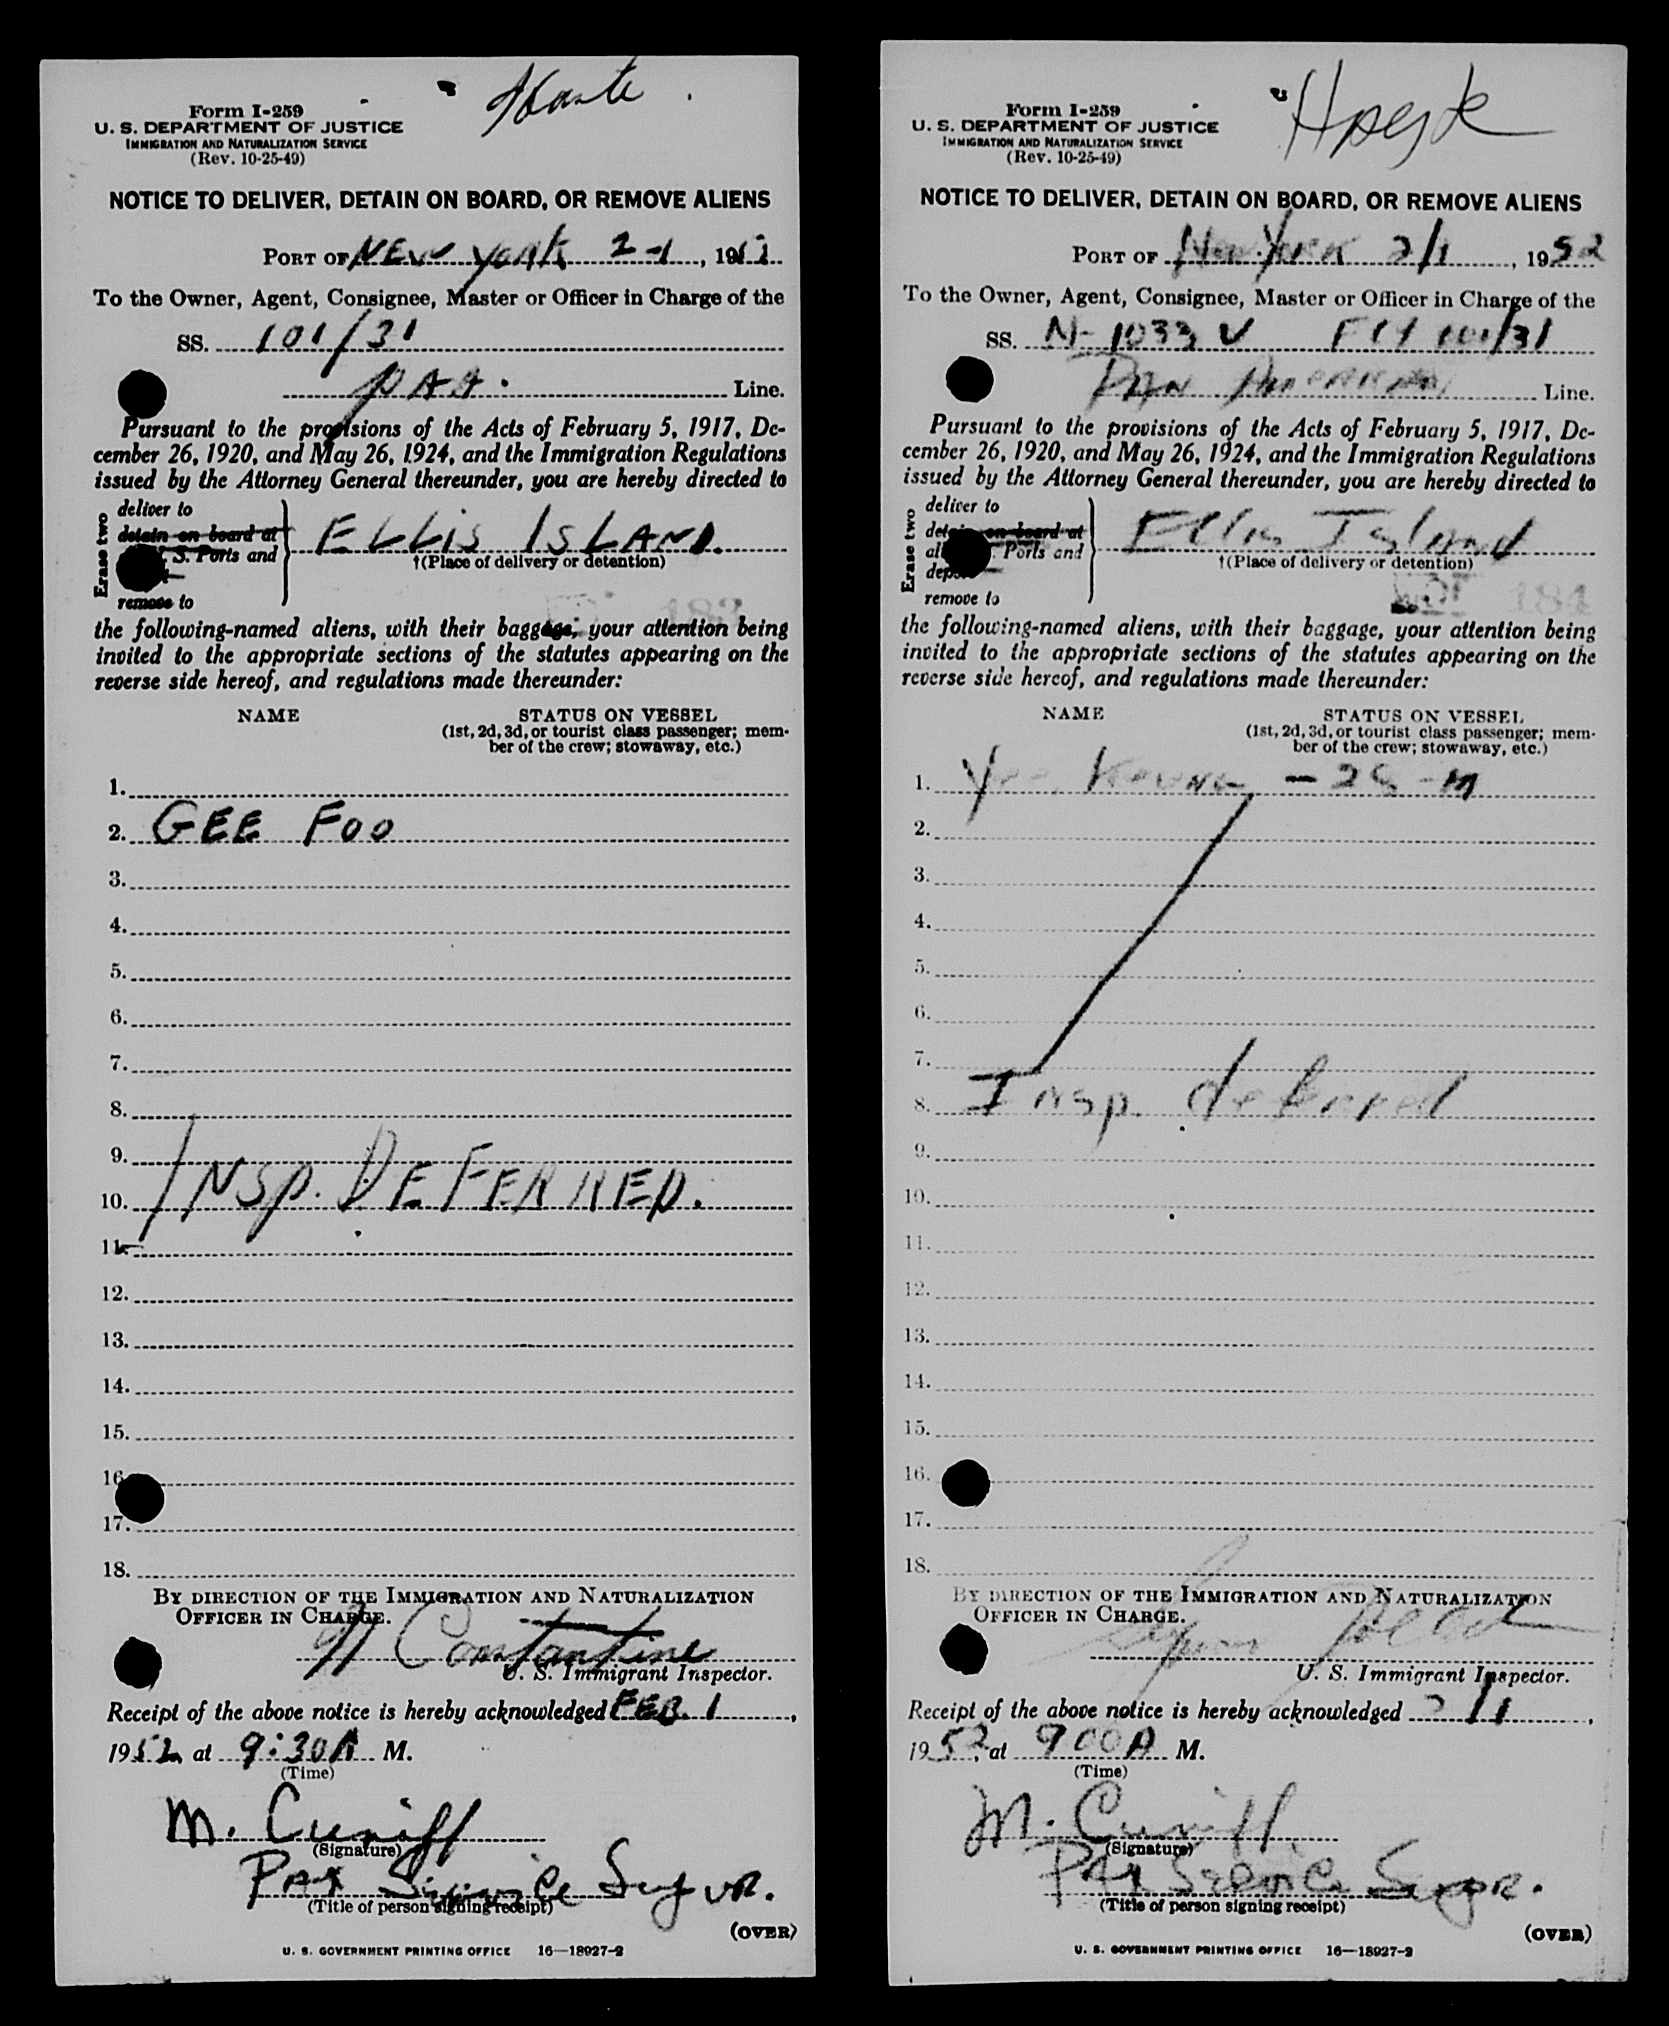 Form I-259
U. S. DEPARTMENT OF JUSTICE
IMMIGRATION AND NATURALIZATION SERVICE
(Rev. 10-25-49)
NOTICE TO DELIVER, DETAIN ON BOARD, OR REMOVE ALIENS
PORT OF NEW YORK 2-1, 19
To the Owner, Agent, Consignee, Master or Officer in Charge of the
SS. 101/31
PAA. Line.
Pursuant to the provisions of the Acts of February 5, 1917, De-
cember 26, 1920, and May 26, 1924, and the Immigration Regulations
issued by the Attorney General thereunder, you are hereby directed to
Erase two
deliver to
detain on board at
S. Ports and
remove to
ELLIS ISLAND.
†(Place of delivery or detention)
183
the following-named aliens, with their baggage, your attention being
invited to the appropriate sections of the statutes appearing on the
reverse side hereof, and regulations made thereunder:
NAME STATUS ON VESSEL
(1st, 2d, 3d, or tourist class passenger; mem-
ber of the crew; stowaway, etc.)
1.
2. GEE FOO
3.
4.
5.
6.
7.
8.
9.
10. INSP. DEFERRED.
11.
12.
13.
14.
15.
16.
17.
18.
BY DIRECTION OF THE IMMIGRATION AND NATURALIZATION
OFFICER IN CHARGE.
Constantine
U. S. Immigrant Inspector.
Receipt of the above notice is hereby acknowledged FEB. 1,
1952, at 9:30 A M.
(Time)
M. Cuniff
(Signature)
PAX Service Supvr.
(Title of person signing receipt)
(OVER)
U. S. GOVERNMENT PRINTING OFFICE 16—18927-2
Form I-259
U. S. DEPARTMENT OF JUSTICE
IMMIGRATION AND NATURALIZATION SERVICE
(Rev. 10-25-49)
NOTICE TO DELIVER, DETAIN ON BOARD, OR REMOVE ALIENS
PORT OF New York 2/1, 1952
To the Owner, Agent, Consignee, Master or Officer in Charge of the
SS. N-1033 V Flt 101/31
Pan American Line.
Pursuant to the provisions of the Acts of February 5, 1917, De-
cember 26, 1920, and May 26, 1924, and the Immigration Regulations
issued by the Attorney General thereunder, you are hereby directed to
Erase two
deliver to
detain on board at
all Ports and
remove to
Ellis Island
†(Place of delivery or detention)
184
the following-named aliens, with their baggage, your attention being
invited to the appropriate sections of the statutes appearing on the
reverse side hereof, and regulations made thereunder:
NAME STATUS ON VESSEL
(1st, 2d, 3d, or tourist class passenger; mem-
ber of the crew; stowaway, etc.)
1. - M
2.
3.
4.
5.
6.
7.
8. Insp. deferred
9.
10.
11.
12.
13.
14.
15.
16.
17.
18.
BY DIRECTION OF THE IMMIGRATION AND NATURALIZATION
OFFICER IN CHARGE.
U. S. Immigrant Inspector.
Receipt of the above notice is hereby acknowledged 2/1,
1952, at 900 A M.
(Time)
M. Cuniff
(Signature)
PAX Service Supvr.
(Title of person signing receipt)
(OVER)
U. S. GOVERNMENT PRINTING OFFICE 16—18927-2